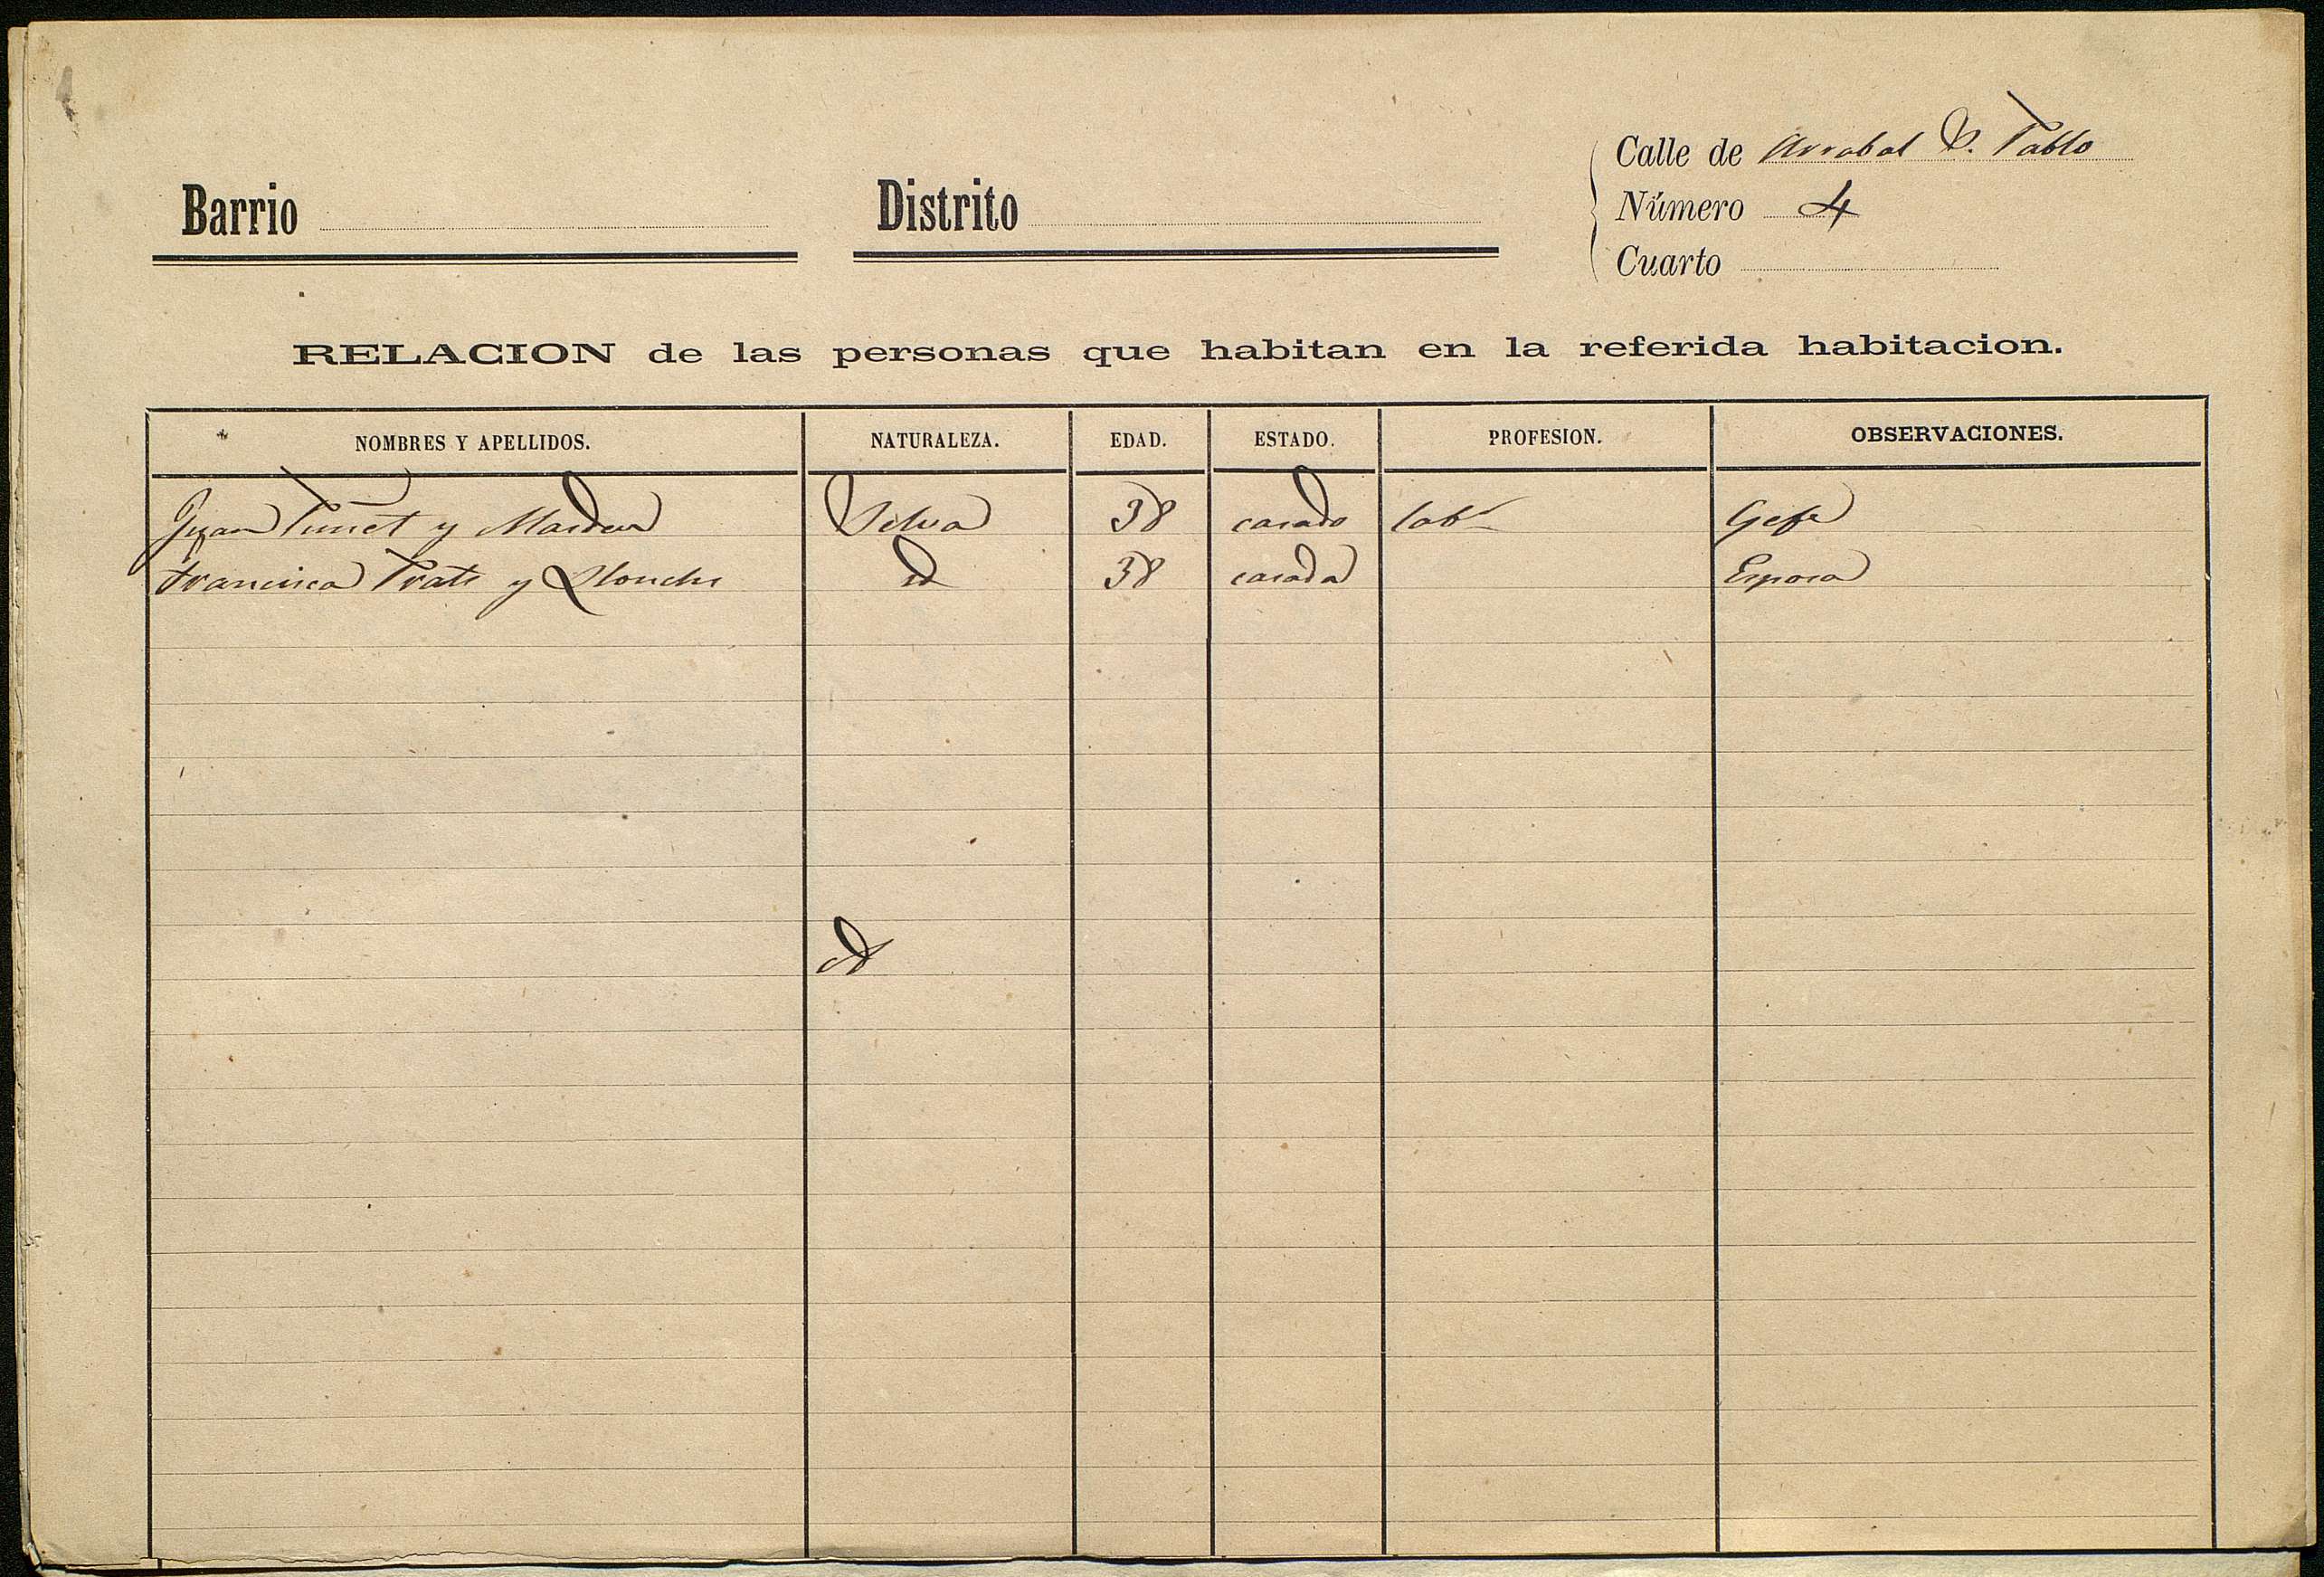 Calle de Arrabal S. Pablo
Barrio
Distrito
Número 4
Cuarto
RELACION de las personas que habitan en la referida habitacion.
NOMBRES Y APELLIDOS. NATURALEZA. EDAD. ESTADO. PROFESION. OBSERVACIONES.
Juan y Selva 38 casado labr Gefe
Francisca Prats y Llonch id 38 casada Esposa
id